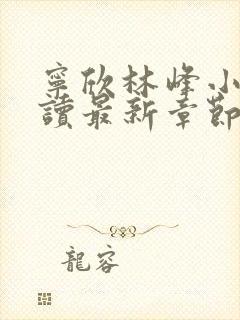 寧欣林峰小
讀最新章節
龍容